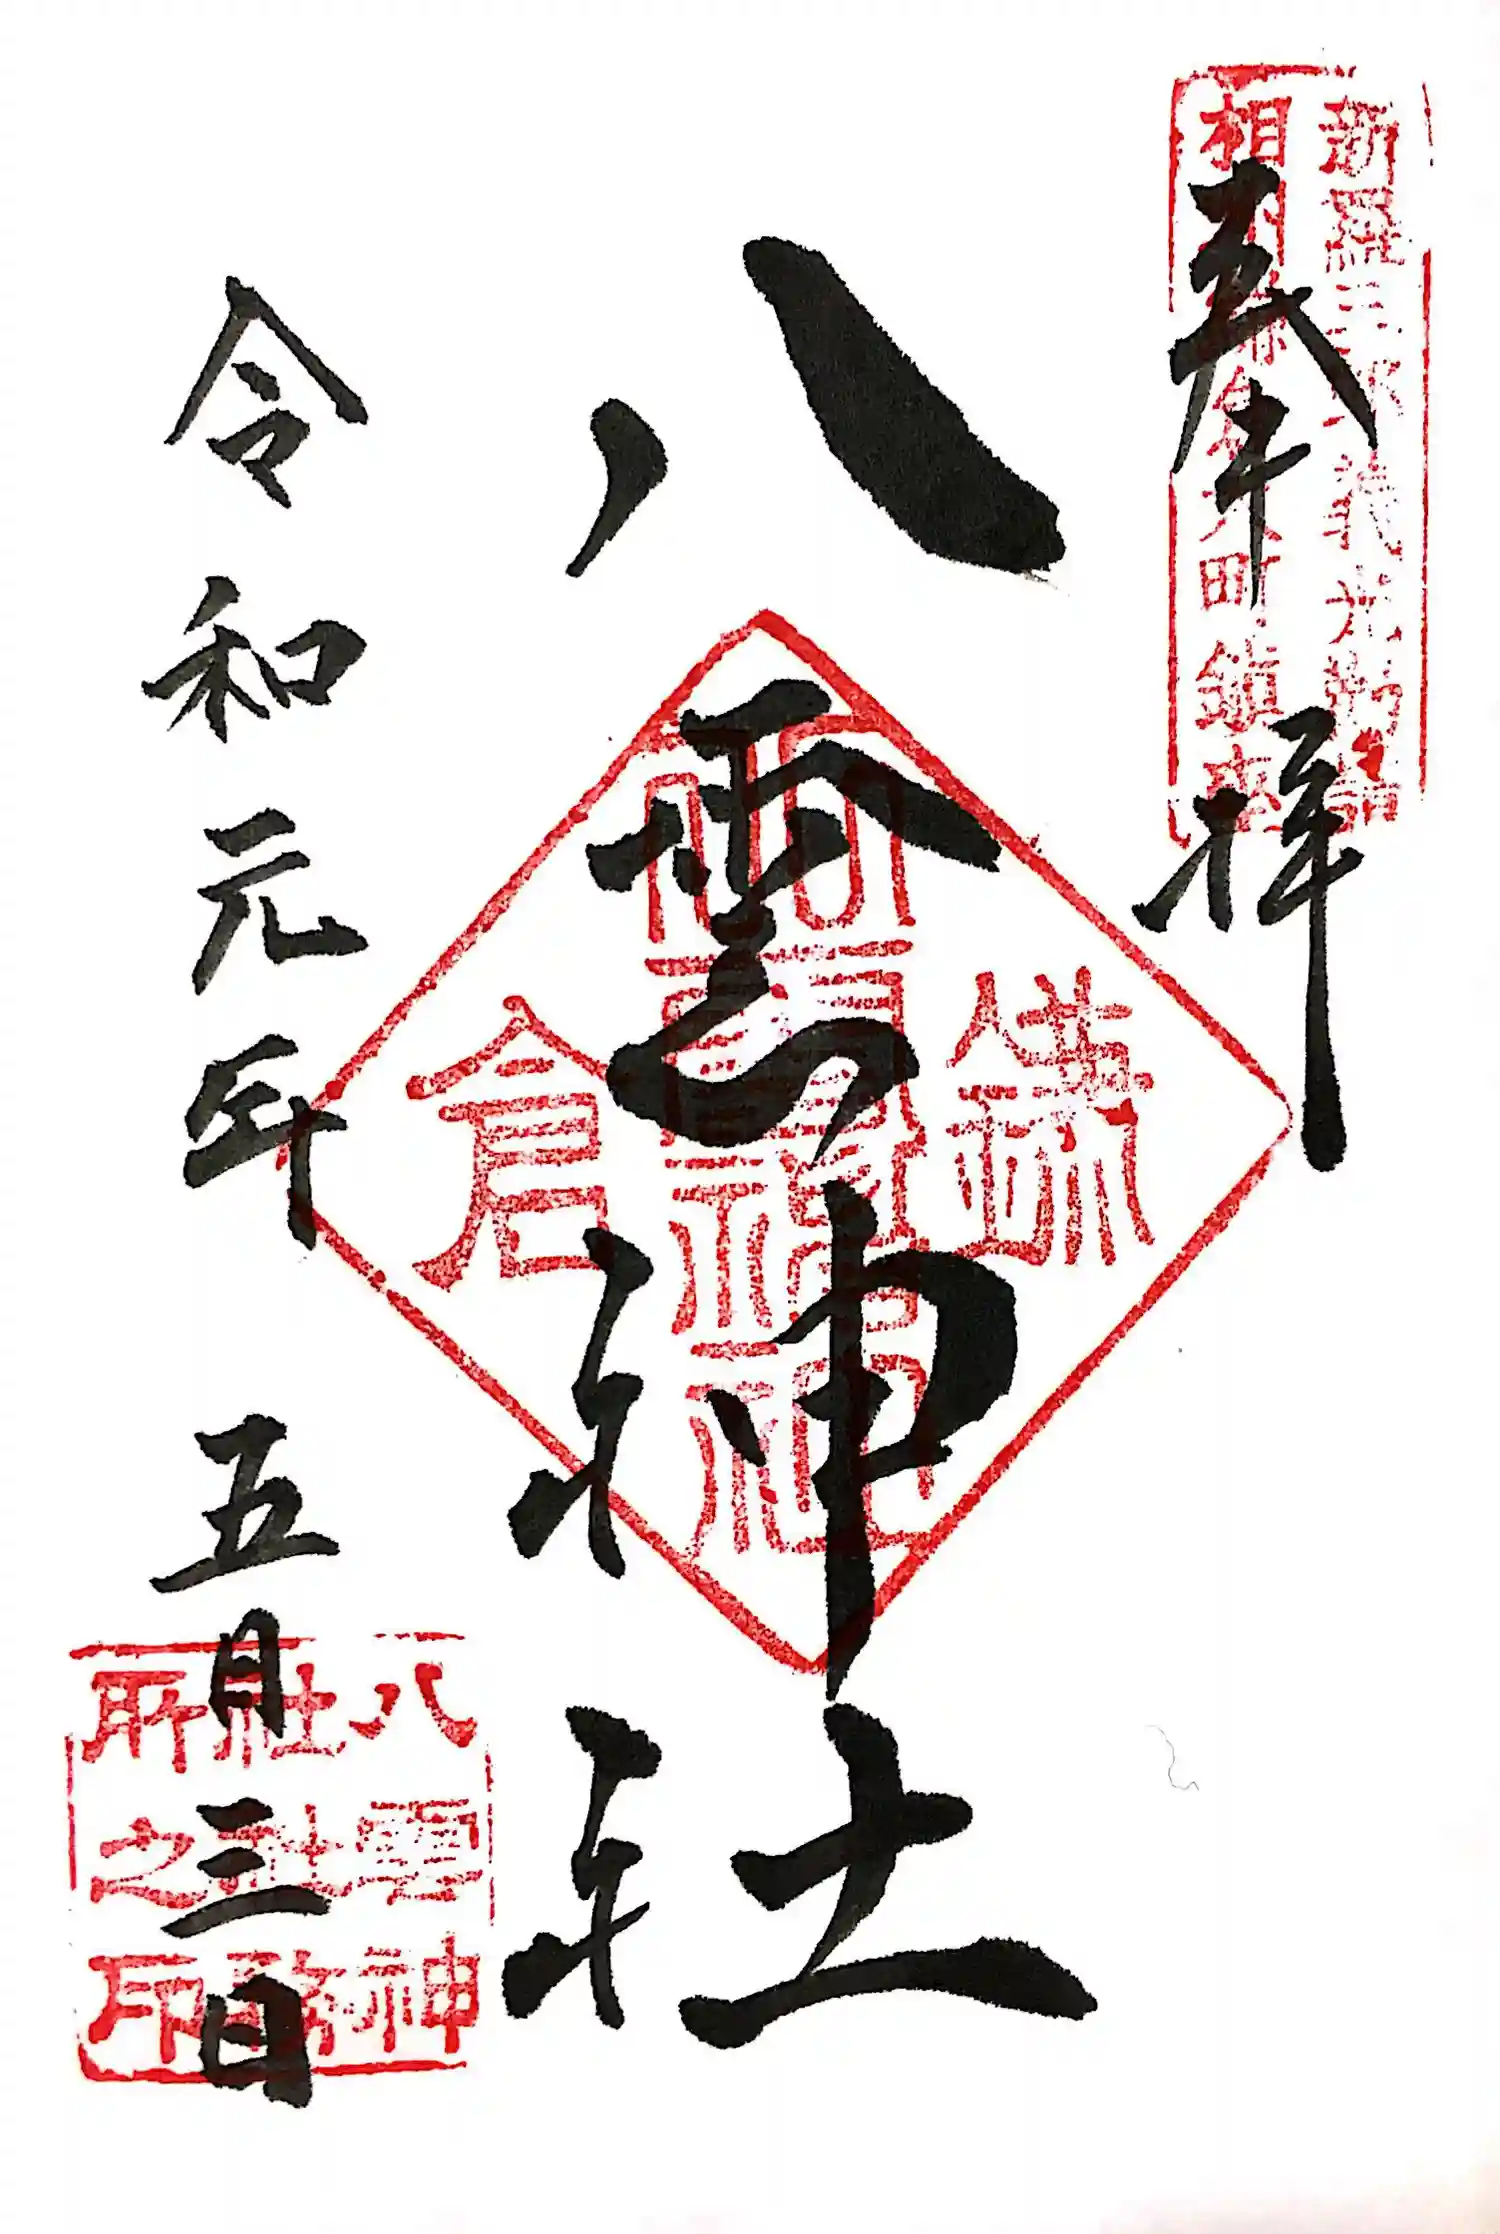 新羅三郎義光勧請
相鎌倉大町鎮座
奉拝
八雲神社
鎌倉
令和元年 五月三日
八雲神
社社務
所之印